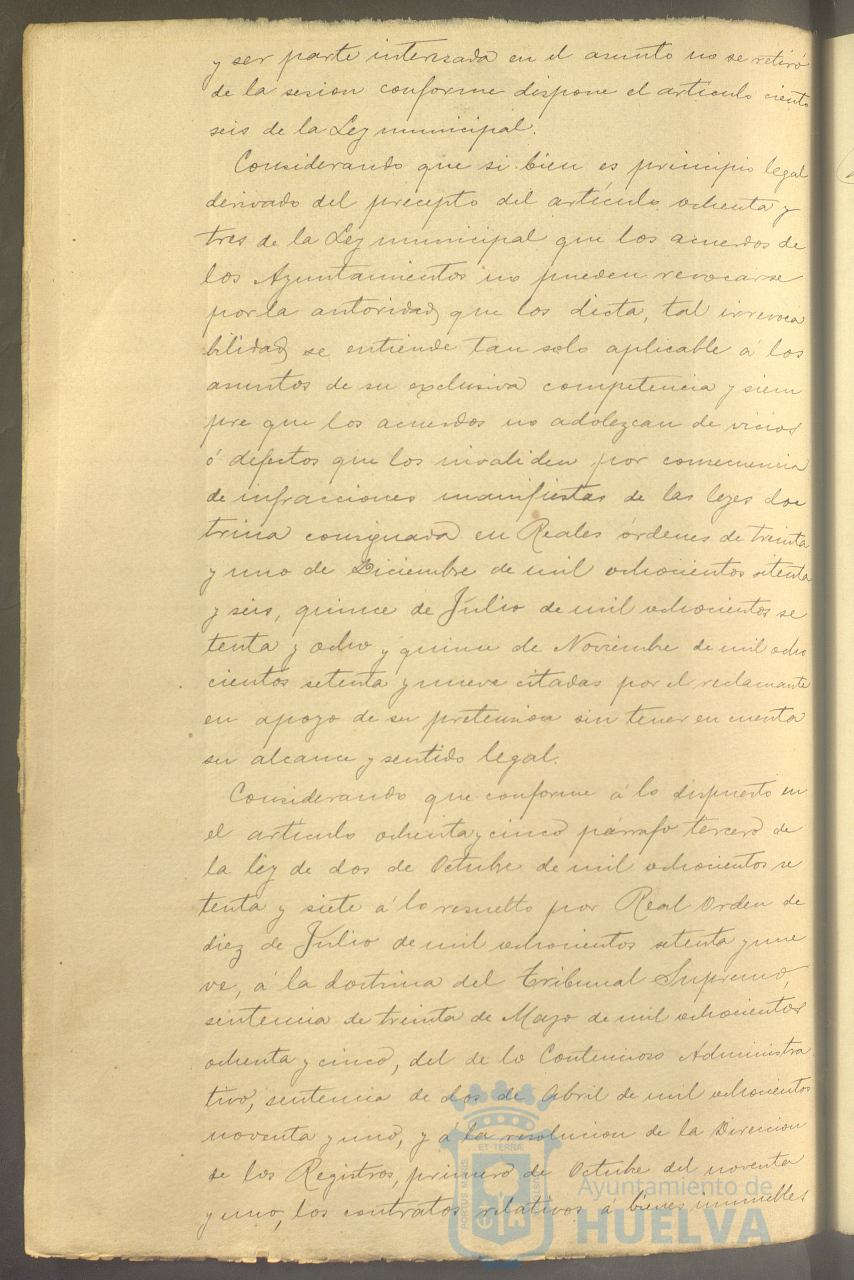 y ser parte interesada en el asunto no se retiró
de la sesion conforme dispone el artículo ciento
seis de la Ley municipal.
Considerando que si bien es principio legal
derivado del precepto del artículo ochenta y
tres de la Ley municipal que los acuerdos de
los Ayuntamientos no pueden revocarse
por la autoridad que los dicta, tal irrevoca
bilidad se entiende tan solo aplicable á los
asuntos de su exclusiva competencia y siem
pre que los acuerdos no adolezcan de vicios
ó defectos que los invaliden por consecuencia
de infracciones manifiestas de las leyes doc
trina consignada en Reales órdenes de treinta
y uno de Diciembre de mil ochocientos setenta
y seis, quince de Julio de mil ochocientos se
tenta y ocho y quince de Noviembre de mil ocho
cientos setenta y nueve citadas por el reclamante
en apoyo de su pretension sin tener en cuenta
su alcance y sentido legal.
Considerando que conforme á lo dispuesto en
el artículo ochenta y cinco párrafo tercero de
la ley de dos de Octubre de mil ochocientos se
tenta y siete á lo resuelto por Real Orden de
diez de Julio de mil ochocientos setenta y nue
ve, á la doctrina del Tribunal Supremo,
sentencia de treinta de Mayo de mil ochocientos
ochenta y cinco, del de lo Contencioso Administra
tivo, sentencia de dos de Abril de mil ochocientos
noventa y uno, y á la resolucion de la Direccion
de los Registros, primero de Octubre del noventa
y uno, los contratos relativos á bienes inmuebles
ET TERRÆ
PORTUS MARIS
CUSTODIA
Ayuntamiento de
HUELVA